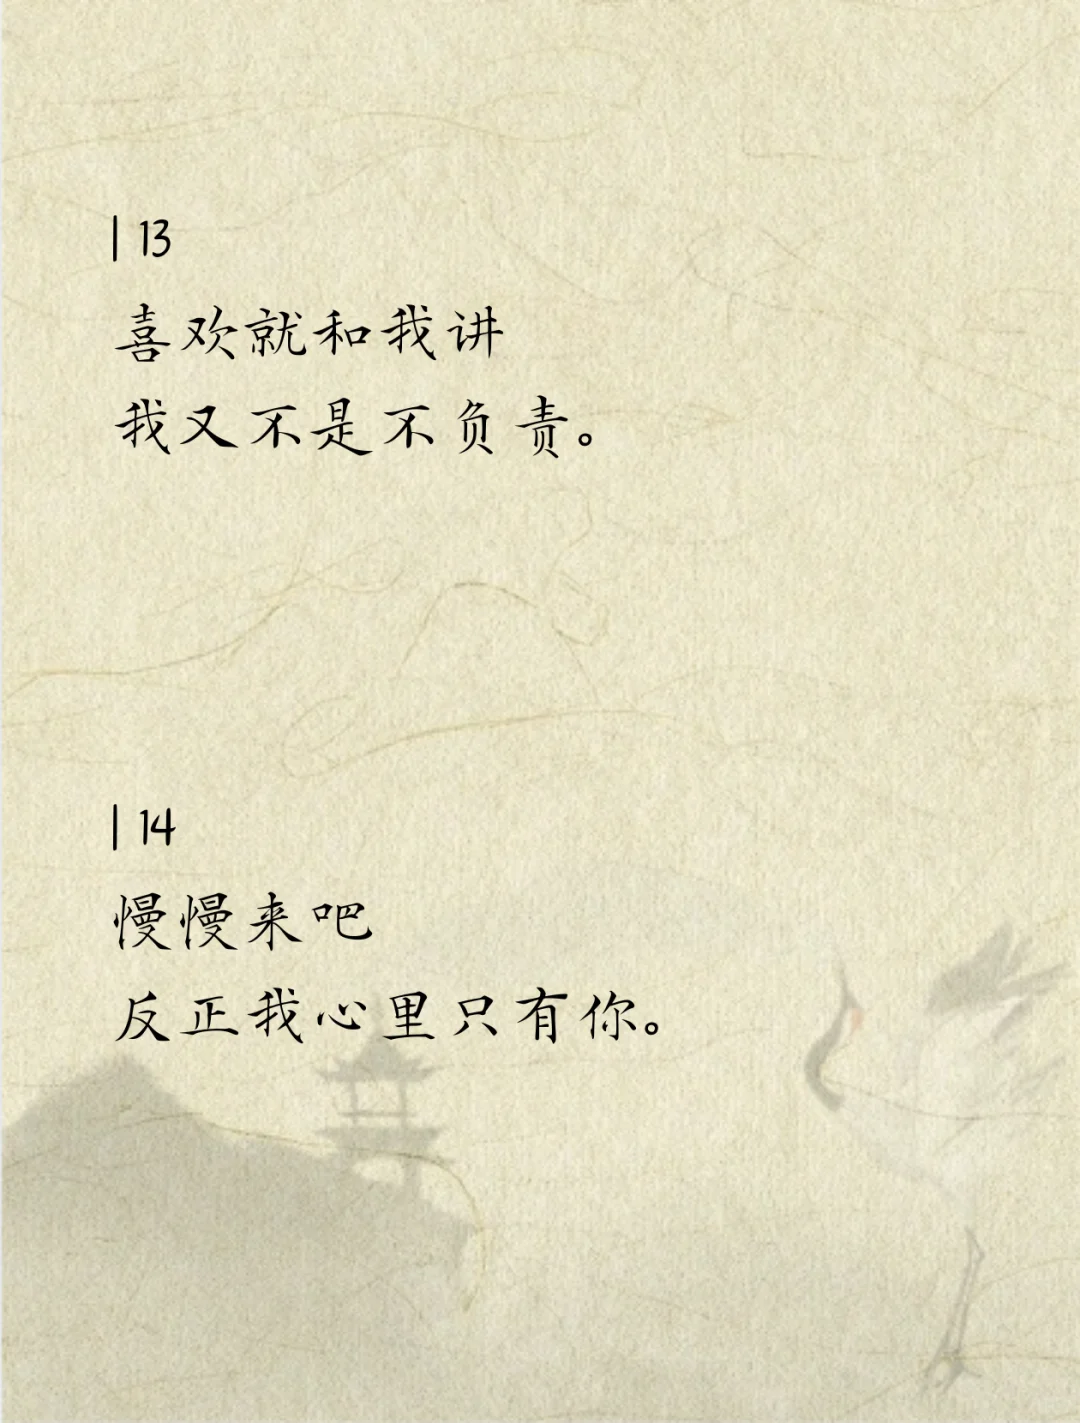 | 13
喜欢就和我讲
我又不是不负责。
| 14
慢慢来吧
反正我心里只有你。